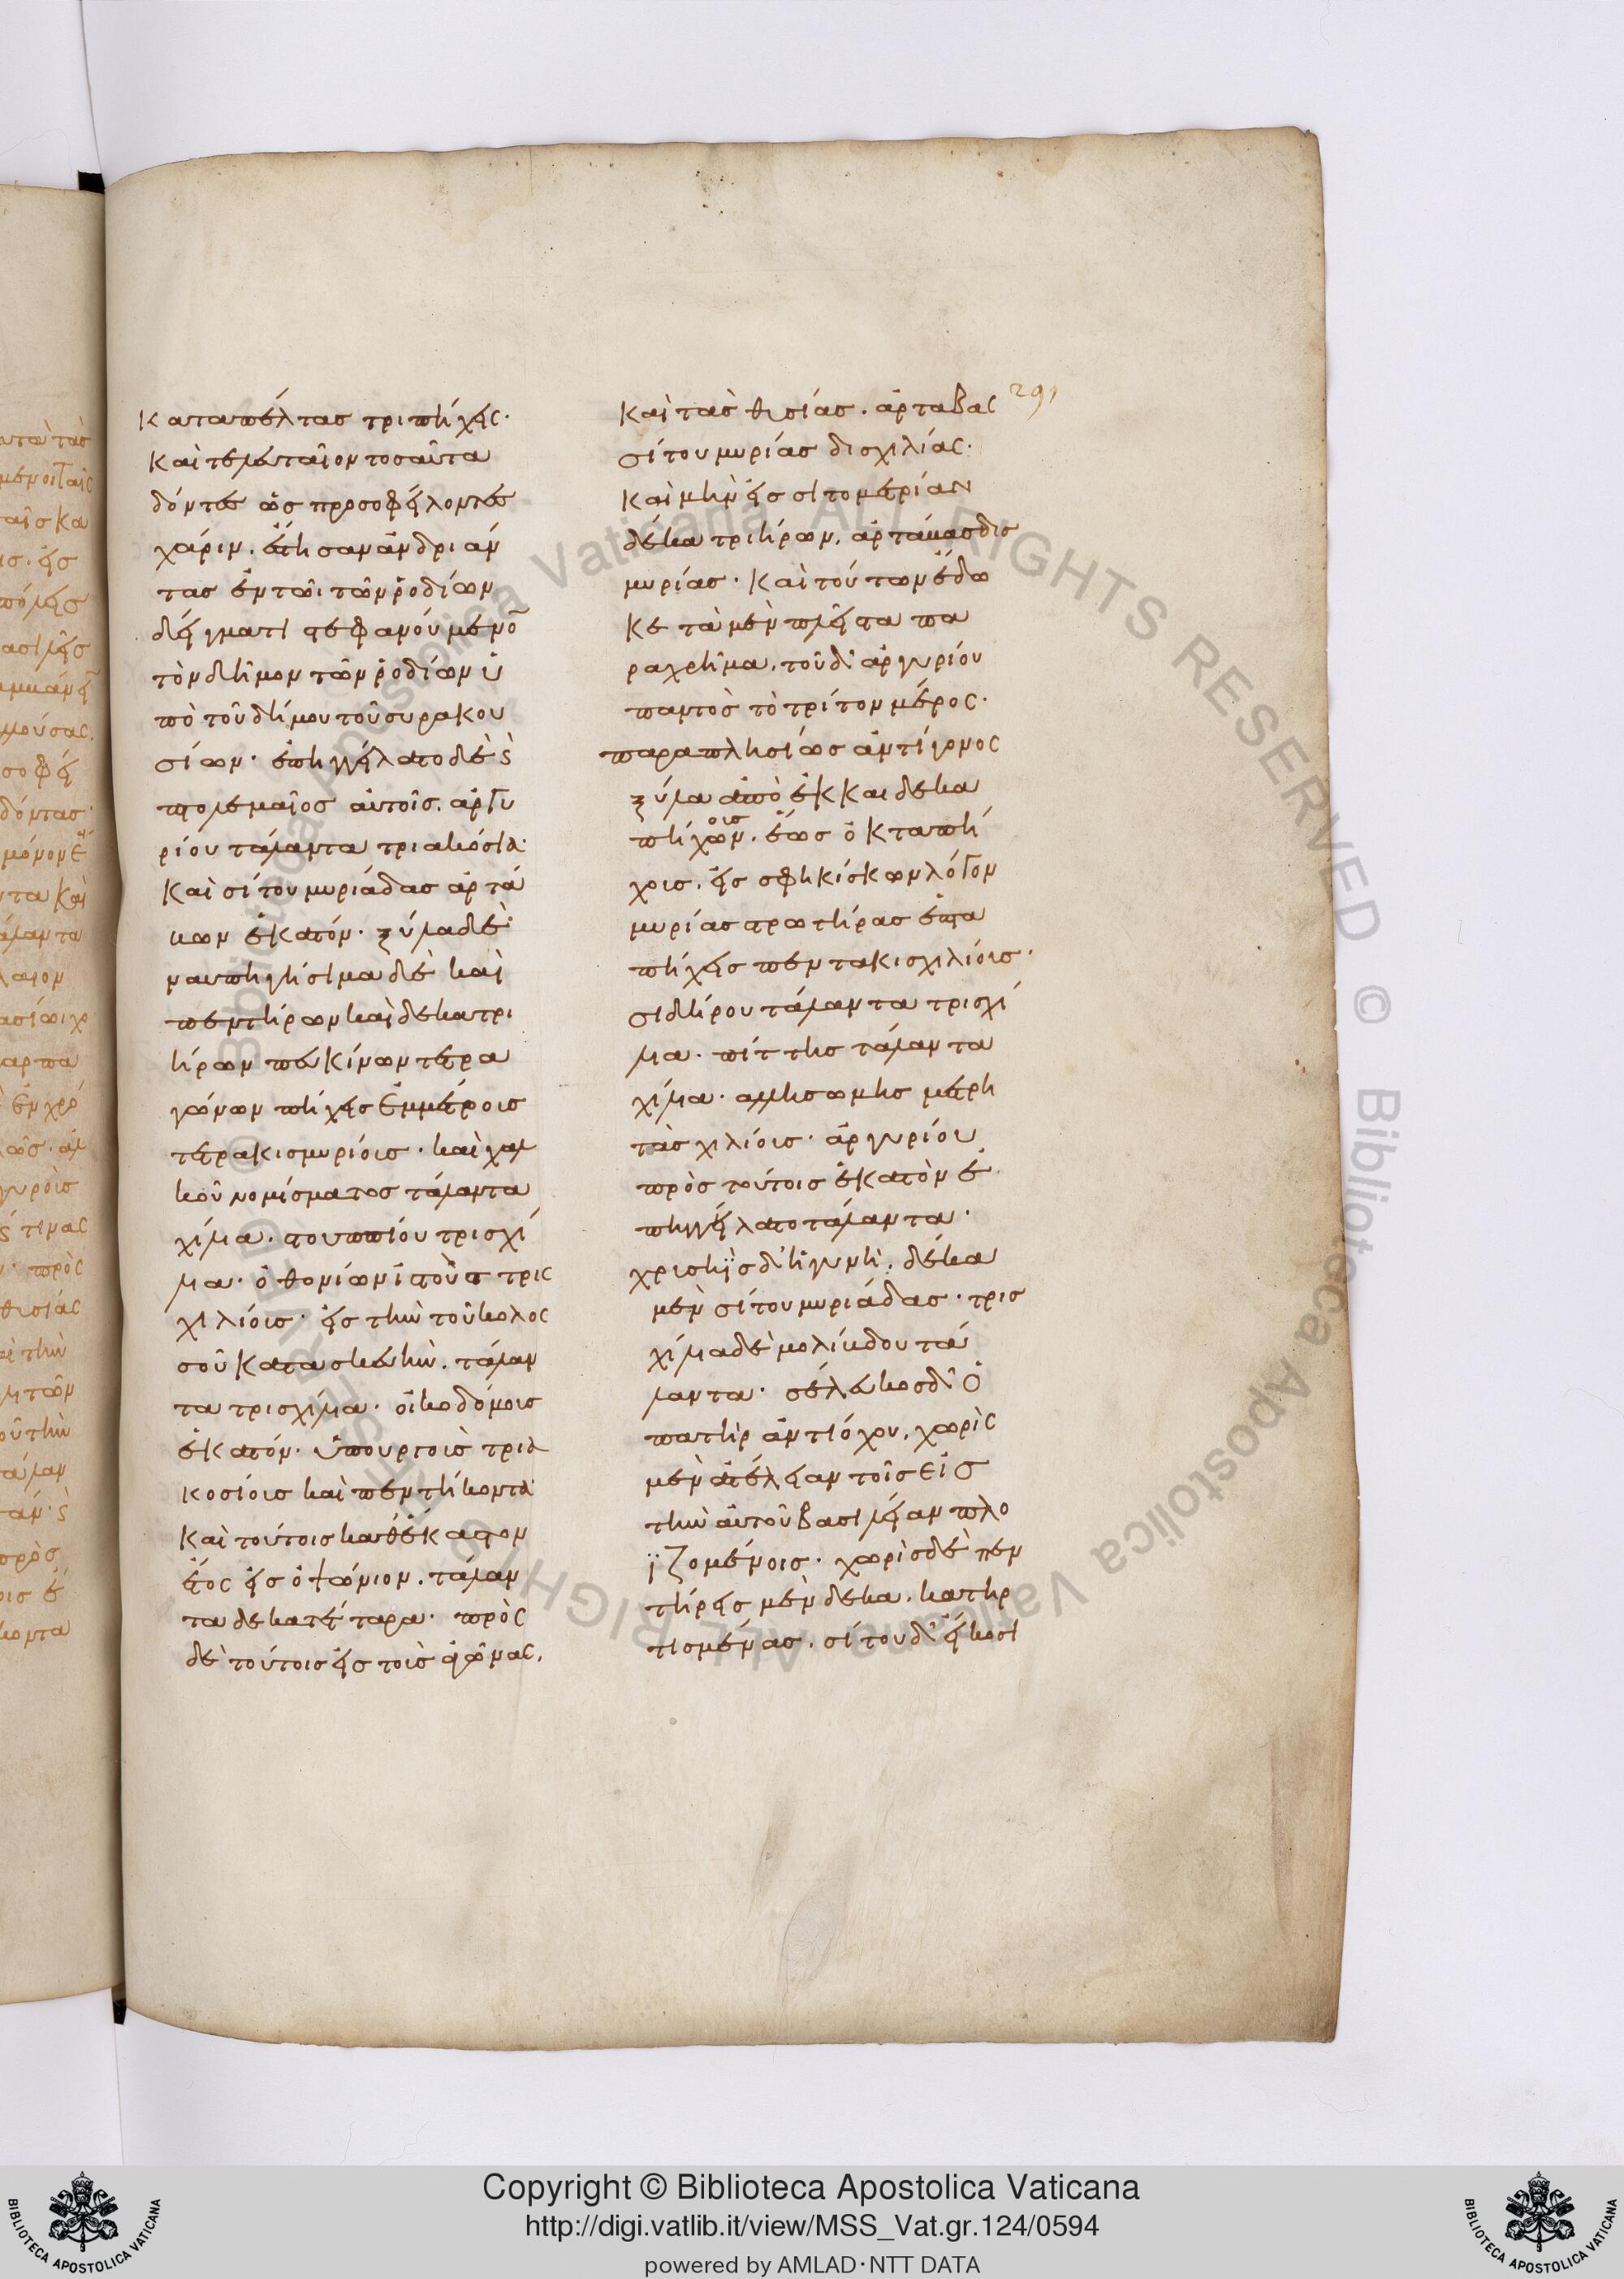 καταπέλτας τριπήχεις·
καὶ τελευταῖον τοσαῦτα
δόντες ὡς προσοφείλοντες
χάριν. ἔστησαν ἀνδριάν
τας ἐν τῶι τῶν ῥοδίων
δείγματι στεφανούμενον
τὸν δῆμον τῶν ῥοδίων ὑ
πὸ τοῦ δήμου τοῦ συρακου
σίων· ἐπηγγείλατο δὲ ϗ
πτολεμαῖος αὐτοῖς. ἀργυ
ρίου τάλαντα τριακόσια·
καὶ σίτου μυριάδας ἀρτά
βων ἑκατόν· ξύλα δὲ
ναυπηγήσιμα δὲ καὶ
πεντήρων καὶ δεκατρι
ήρων πευκίνων τετρα
γώνων πήχεις ἐμμέτρους
τετρακισμυρίους· καὶ χαλ
κοῦ νομίσματος τάλαντα
χίλια· στουππίου τρισχί
λια· ὀθονίων ἱστοὺς τρις
χιλίους· εἰς τὴν τοῦ κολος
σοῦ κατασκευὴν. τάλαν
τα τρισχίλια· οἰκοδόμους
ἑκατόν· ὑπουργοὺς τρια
κοσίους καὶ πεντήκοντα·
καὶ τούτοις καθέκαστον
ἔτος εἰς ὀψώνιον. τάλαν
τα δεκατέτταρα· πρὸς
δὲ τούτοις εἰς τοὺς ἀγῶνας.
καὶ τὰς θυσίας. ἀρταβας
σίτου μυρίας δισχιλίας·
καὶ μὴν εἰς σιτομετρίαν
δέκα τριήρων. ἀρτάβας δις
μυρίας· καὶ τούτων ἔδω
κε τὰ μὲν πλεῖστα πα
ραχρῆμα. τοῦ δ' ἀργυρίου
παντὸς τὸ τρίτον μέρος·
παραπλησίως ἀντίγονος
ξύλα ἀπὸ ἑκκαιδεκα
πήχων. ἕως ὀκταπή
οις
χους. εἰς σφηκίσκων λόγον
μυρίας στρωτῆρας ἑπτα
πήχεις πεντακισχιλίους·
σιδήρου τάλαντα τρισχί
λια· πίττης τάλαντα
χίλια· αλλησωμης μετρη
τὰς χιλίους· ἀργυρίου
πρὸς τούτοις ἑκατὸν ἐ
πηγγείλατο τάλαντα·
χρισηῒς δ' ἡ γυνὴ. δέκα
μὲν σίτου μυριάδας· τρισ
χίλια δὲ μολίβδου τά
λαντα· σέλευκος δ' ὁ
πατὴρ ἀντιόχου. χωρὶς
μὲν ἀτέλειαν τοῖς εἰς
τὴν αὐτοῦ βασιλείαν πλο
ϊζομένοις· χωρὶς δὲ πεν
τήρεις μὲν δεκα. κατηρ
τισμένας. σίτου δ' εἴκοσι
291
Copyright © Biblioteca Apostolica Vaticana
http://digi.vatlib.it/view/MSS_Vat.gr.124/0594
powered by AMLAD·NTT DATA